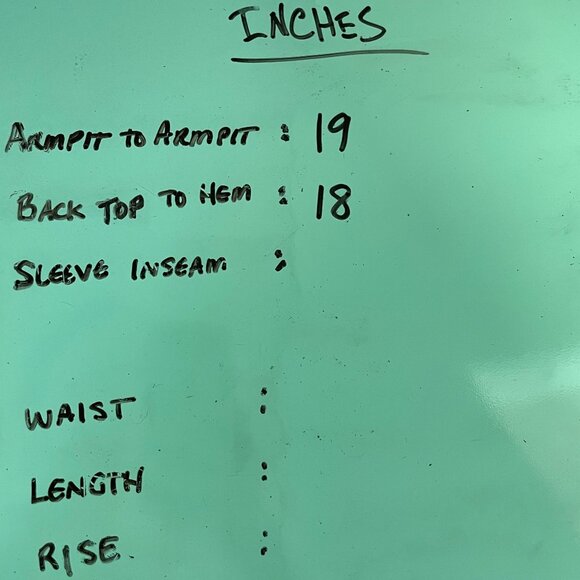 INCHES
ARMPIT TO ARMPIT : 19
BACK TOP TO HEM : 18
SLEEVE INSEAM :
WAIST :
LENGTH :
RISE :